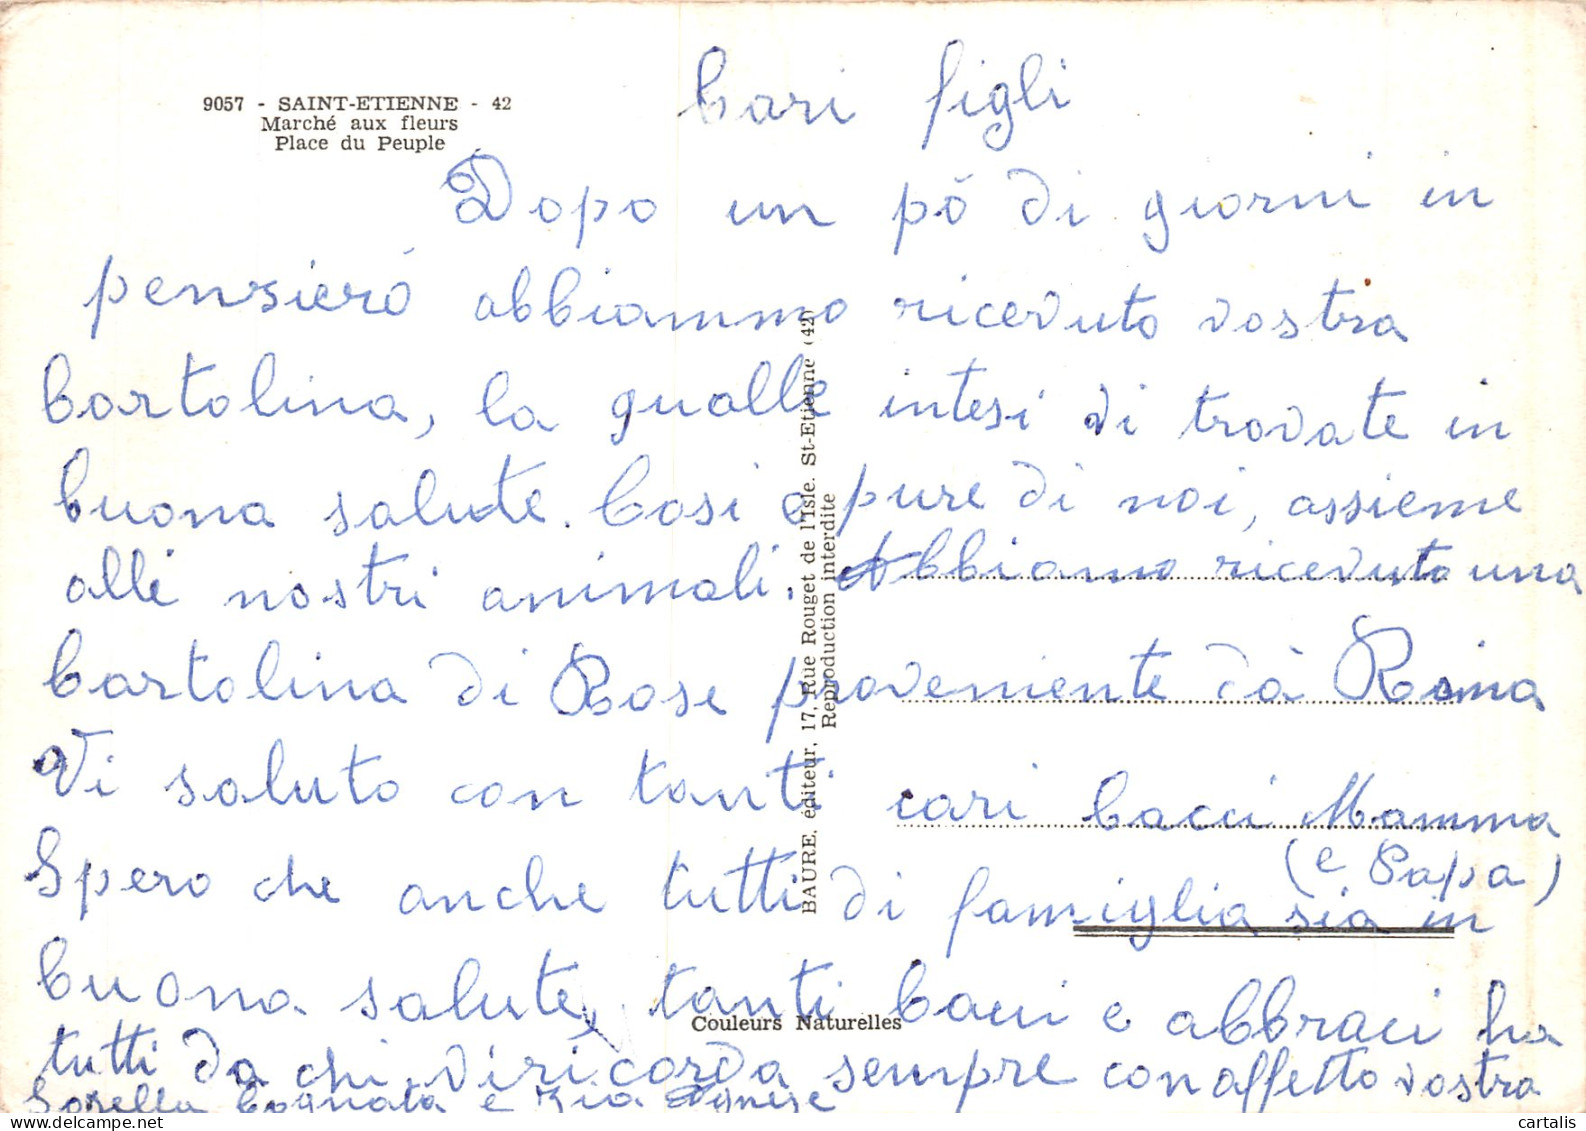 9057 - SAINT-ETIENNE - 42
Marché aux fleurs
Place du Peuple
Cari figli
Dopo un pò di giorni in
pensierò abbiammo ricevuto vostra
Cartolina, la qualle intesi di trovate in
buona salute. Cosi e pure di noi, assieme
alle nostri animali. Abbiamo ricevuto una
Cartolina di Rose proveniente dà Roma
Vi saluto con tanti cari bacci Mamma
(e Papa)
Spero che anche tutti di famiglia sia in
buona salute, tanti bacci e abbracci ha
tutti da chi vi ricorda sempre con affetto vostra
Sorella Cognata e Zia Agnese
BAURE, éditeur, 17, Rue Rouget de l'Isle. St-Etienne (42)
Reproduction interdite
Couleurs Naturelles
cartalis
www.delcampe.net